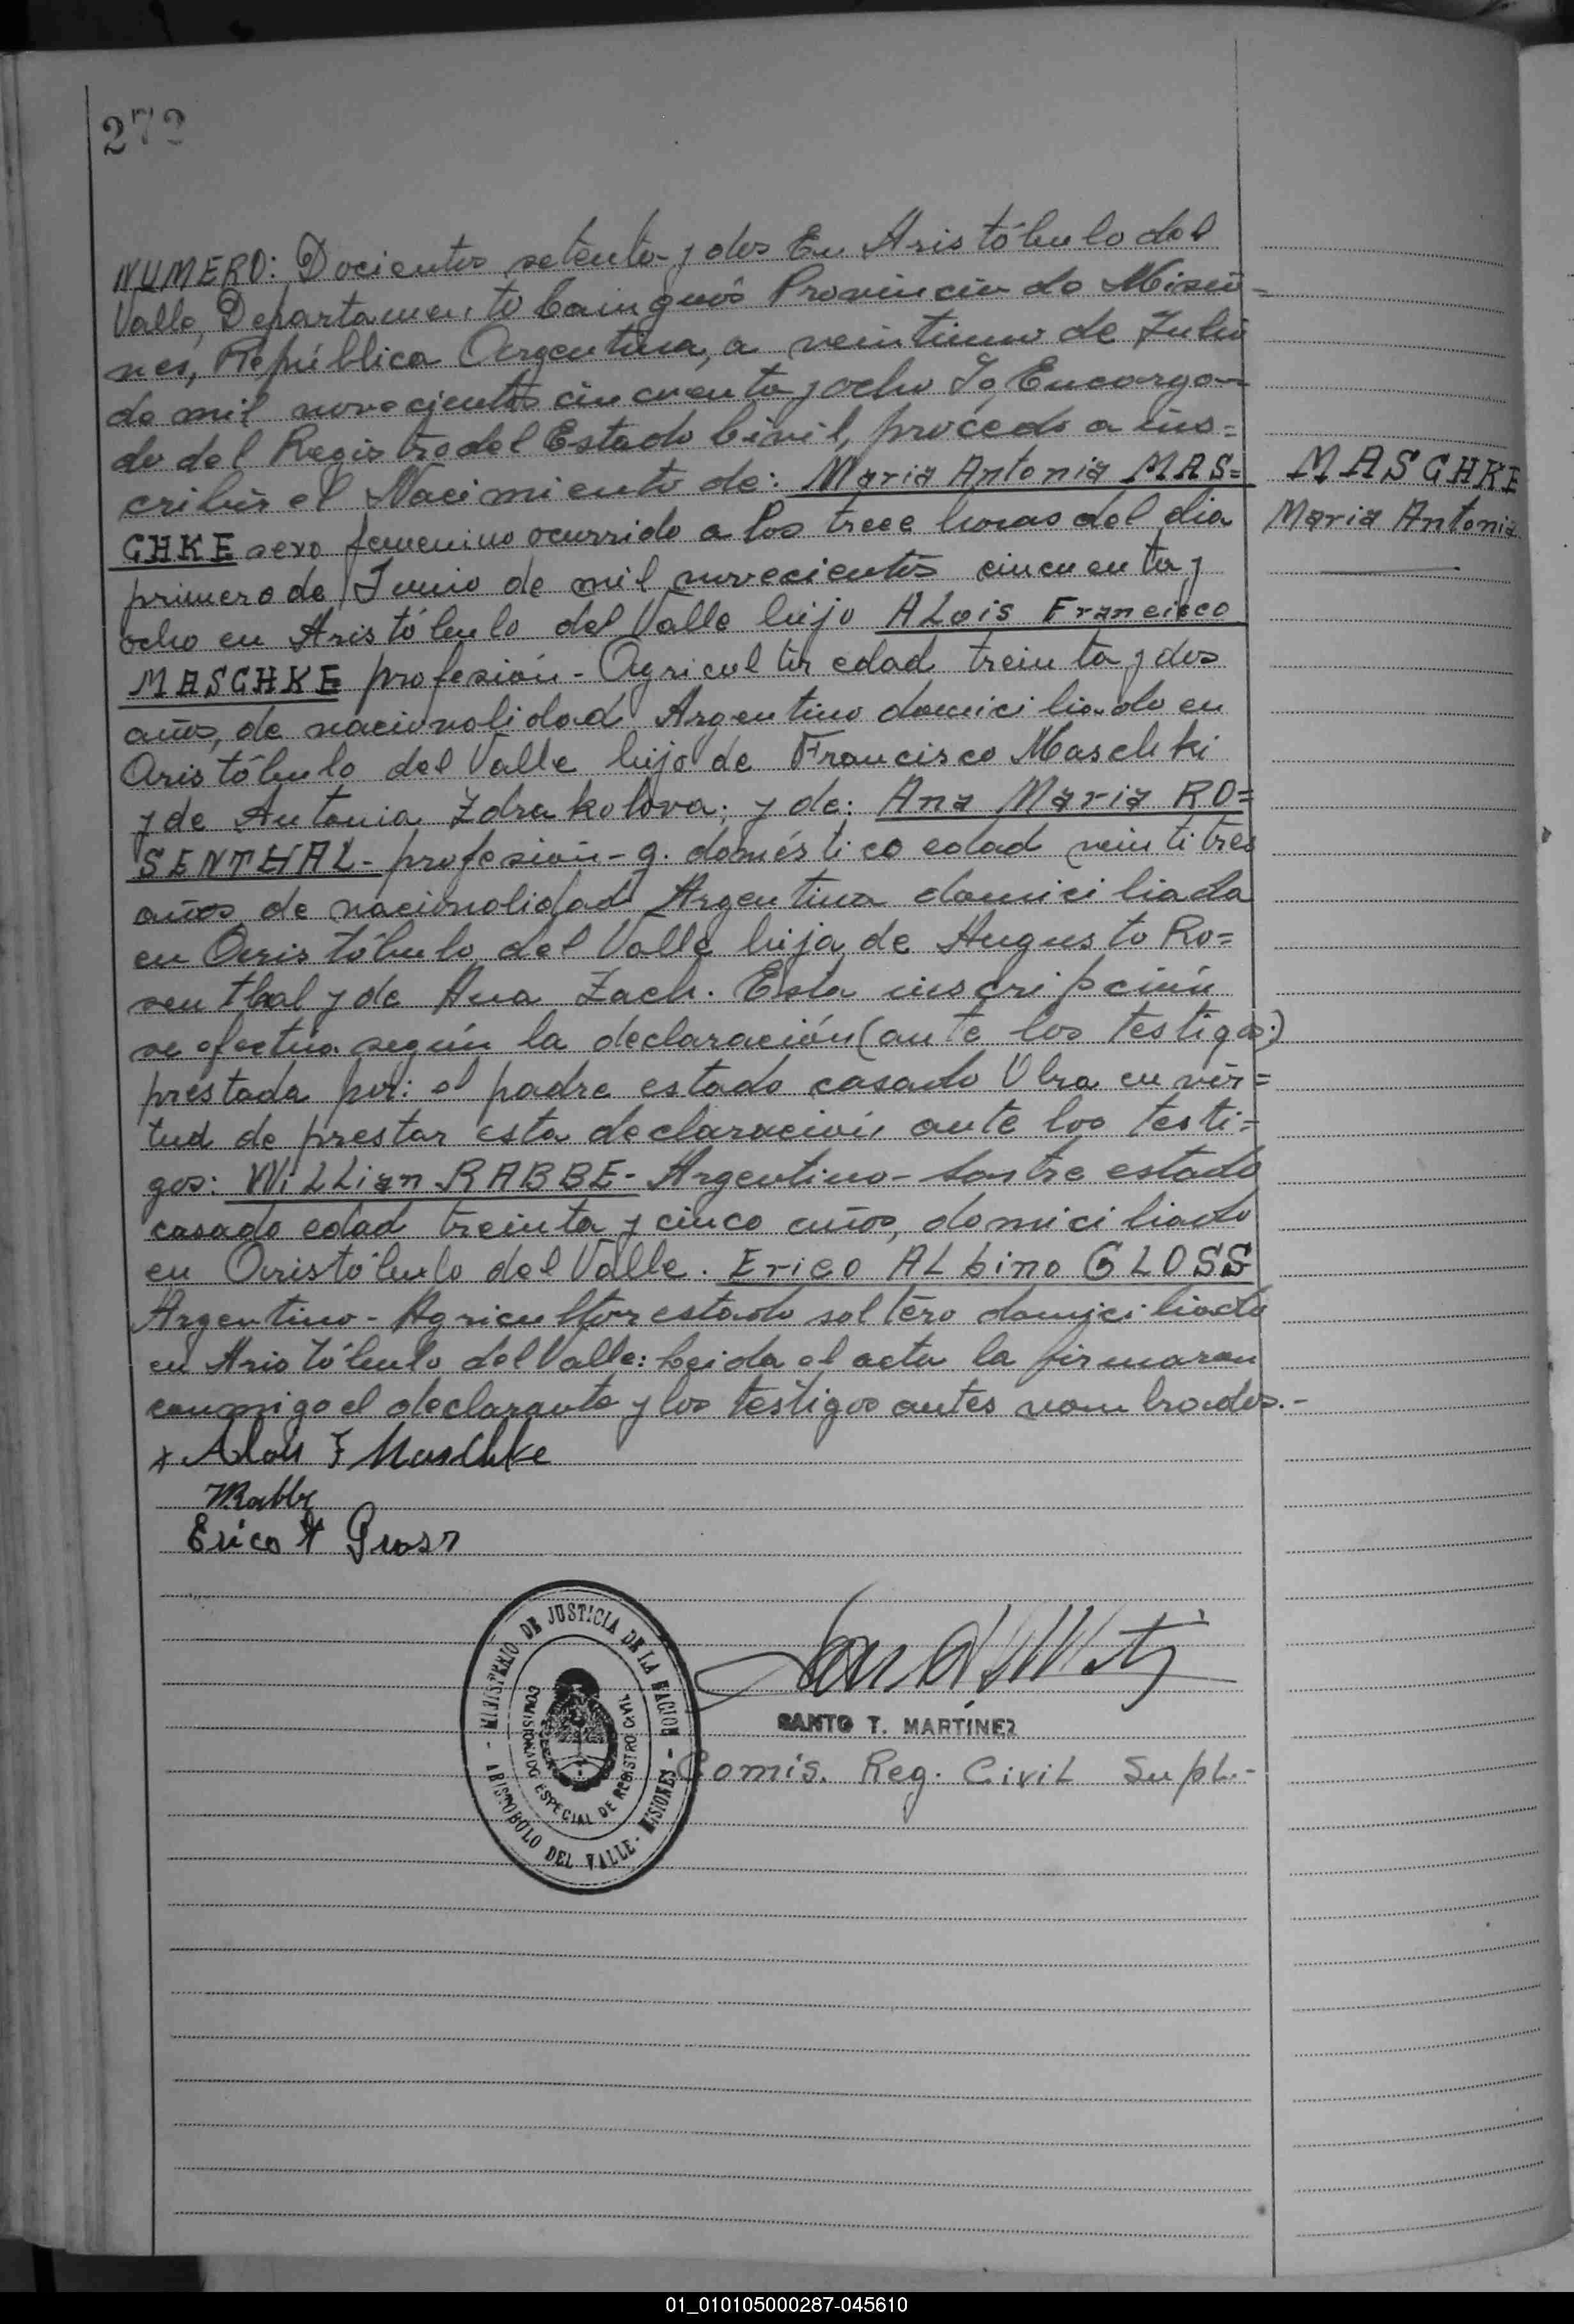 272
NUMERO: Docientos setenta y dos En Aristóbulo del
Valle, Departamento Cainguás Provincia de Misio=
nes, República Argentina, a veintiuno de Julio
de mil novecientos cincuenta y ocho Yo, Encarga-
do del Registro del Estado Civil, procedo a ins=
cribir el Nacimiento de: Maria Antonia MAS=
CHKE sexo femenino ocurrido a las trece horas del dia
primero de Junio de mil novecientos cincuenta y
ocho en Aristóbulo del Valle hijo ALois Francisco
MASCHKE profesión - Agricultor edad treinta y dos
años, de nacionalidad Argentino domiciliado en
Aristóbulo del Valle hijo de Francisco Maschki
y de Antonia Zdrakolova; y de: Ana Maria RO=
SENTHAL - profesión - q. doméstico edad veintitres
años de nacionalidad Argentina domiciliada
en Aristóbulo del Valle hija de Augusto Ro=
senthal y de Ana Zach. Esta inscripción
se efectúa según la declaración (ante los testigos:)
prestada por: el padre estado casado Obra en vir=
tud de prestar esta declaración ante los testi=
gos: WiLLian RABBE - Argentino - Sastre estado
casado edad treinta y cinco años, domiciliado
en Aristóbulo del Valle. Erico ALbino GLOSS
Argentino - Agricultor estado soltero domiciliado
en Aristóbulo del Valle: Leida el acta la firmaron
conmigo el declarante y los testigos antes nombrados.-
MASCHKE
Maria Antonia
x Alois F Maschke
WRabbe
Erico A
MINISTERIO DE JUSTICIA DE LA NACION - ARISTOBULO DEL VALLE - MISIONES -
COMISIONADO ESPECIAL DE REGISTRO CIVIL
SANTO T. MARTINEZ
Comis. Reg. CiviL SupL.-
01_010105000287-045610